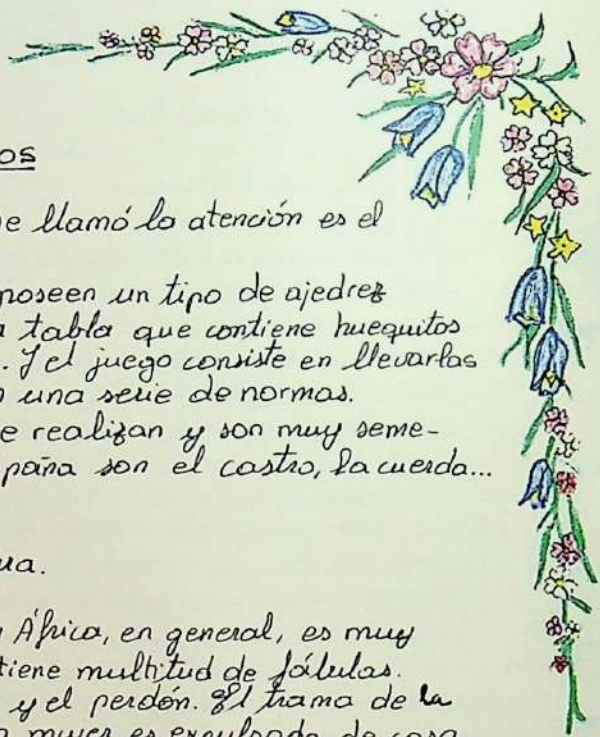 os
e llamó la atención es el
poseen un tipo de ajedrez
tabla que contiene huequitos
. Y el juego consiste en llevarlas
una serie de normas.
e realizan y son muy seme-
paña son el castro, la cuerda...
ua.
África, en general, es muy
tiene multitud de fábulas.
y el perdón. El trama de la
mujer es expulsada de casa